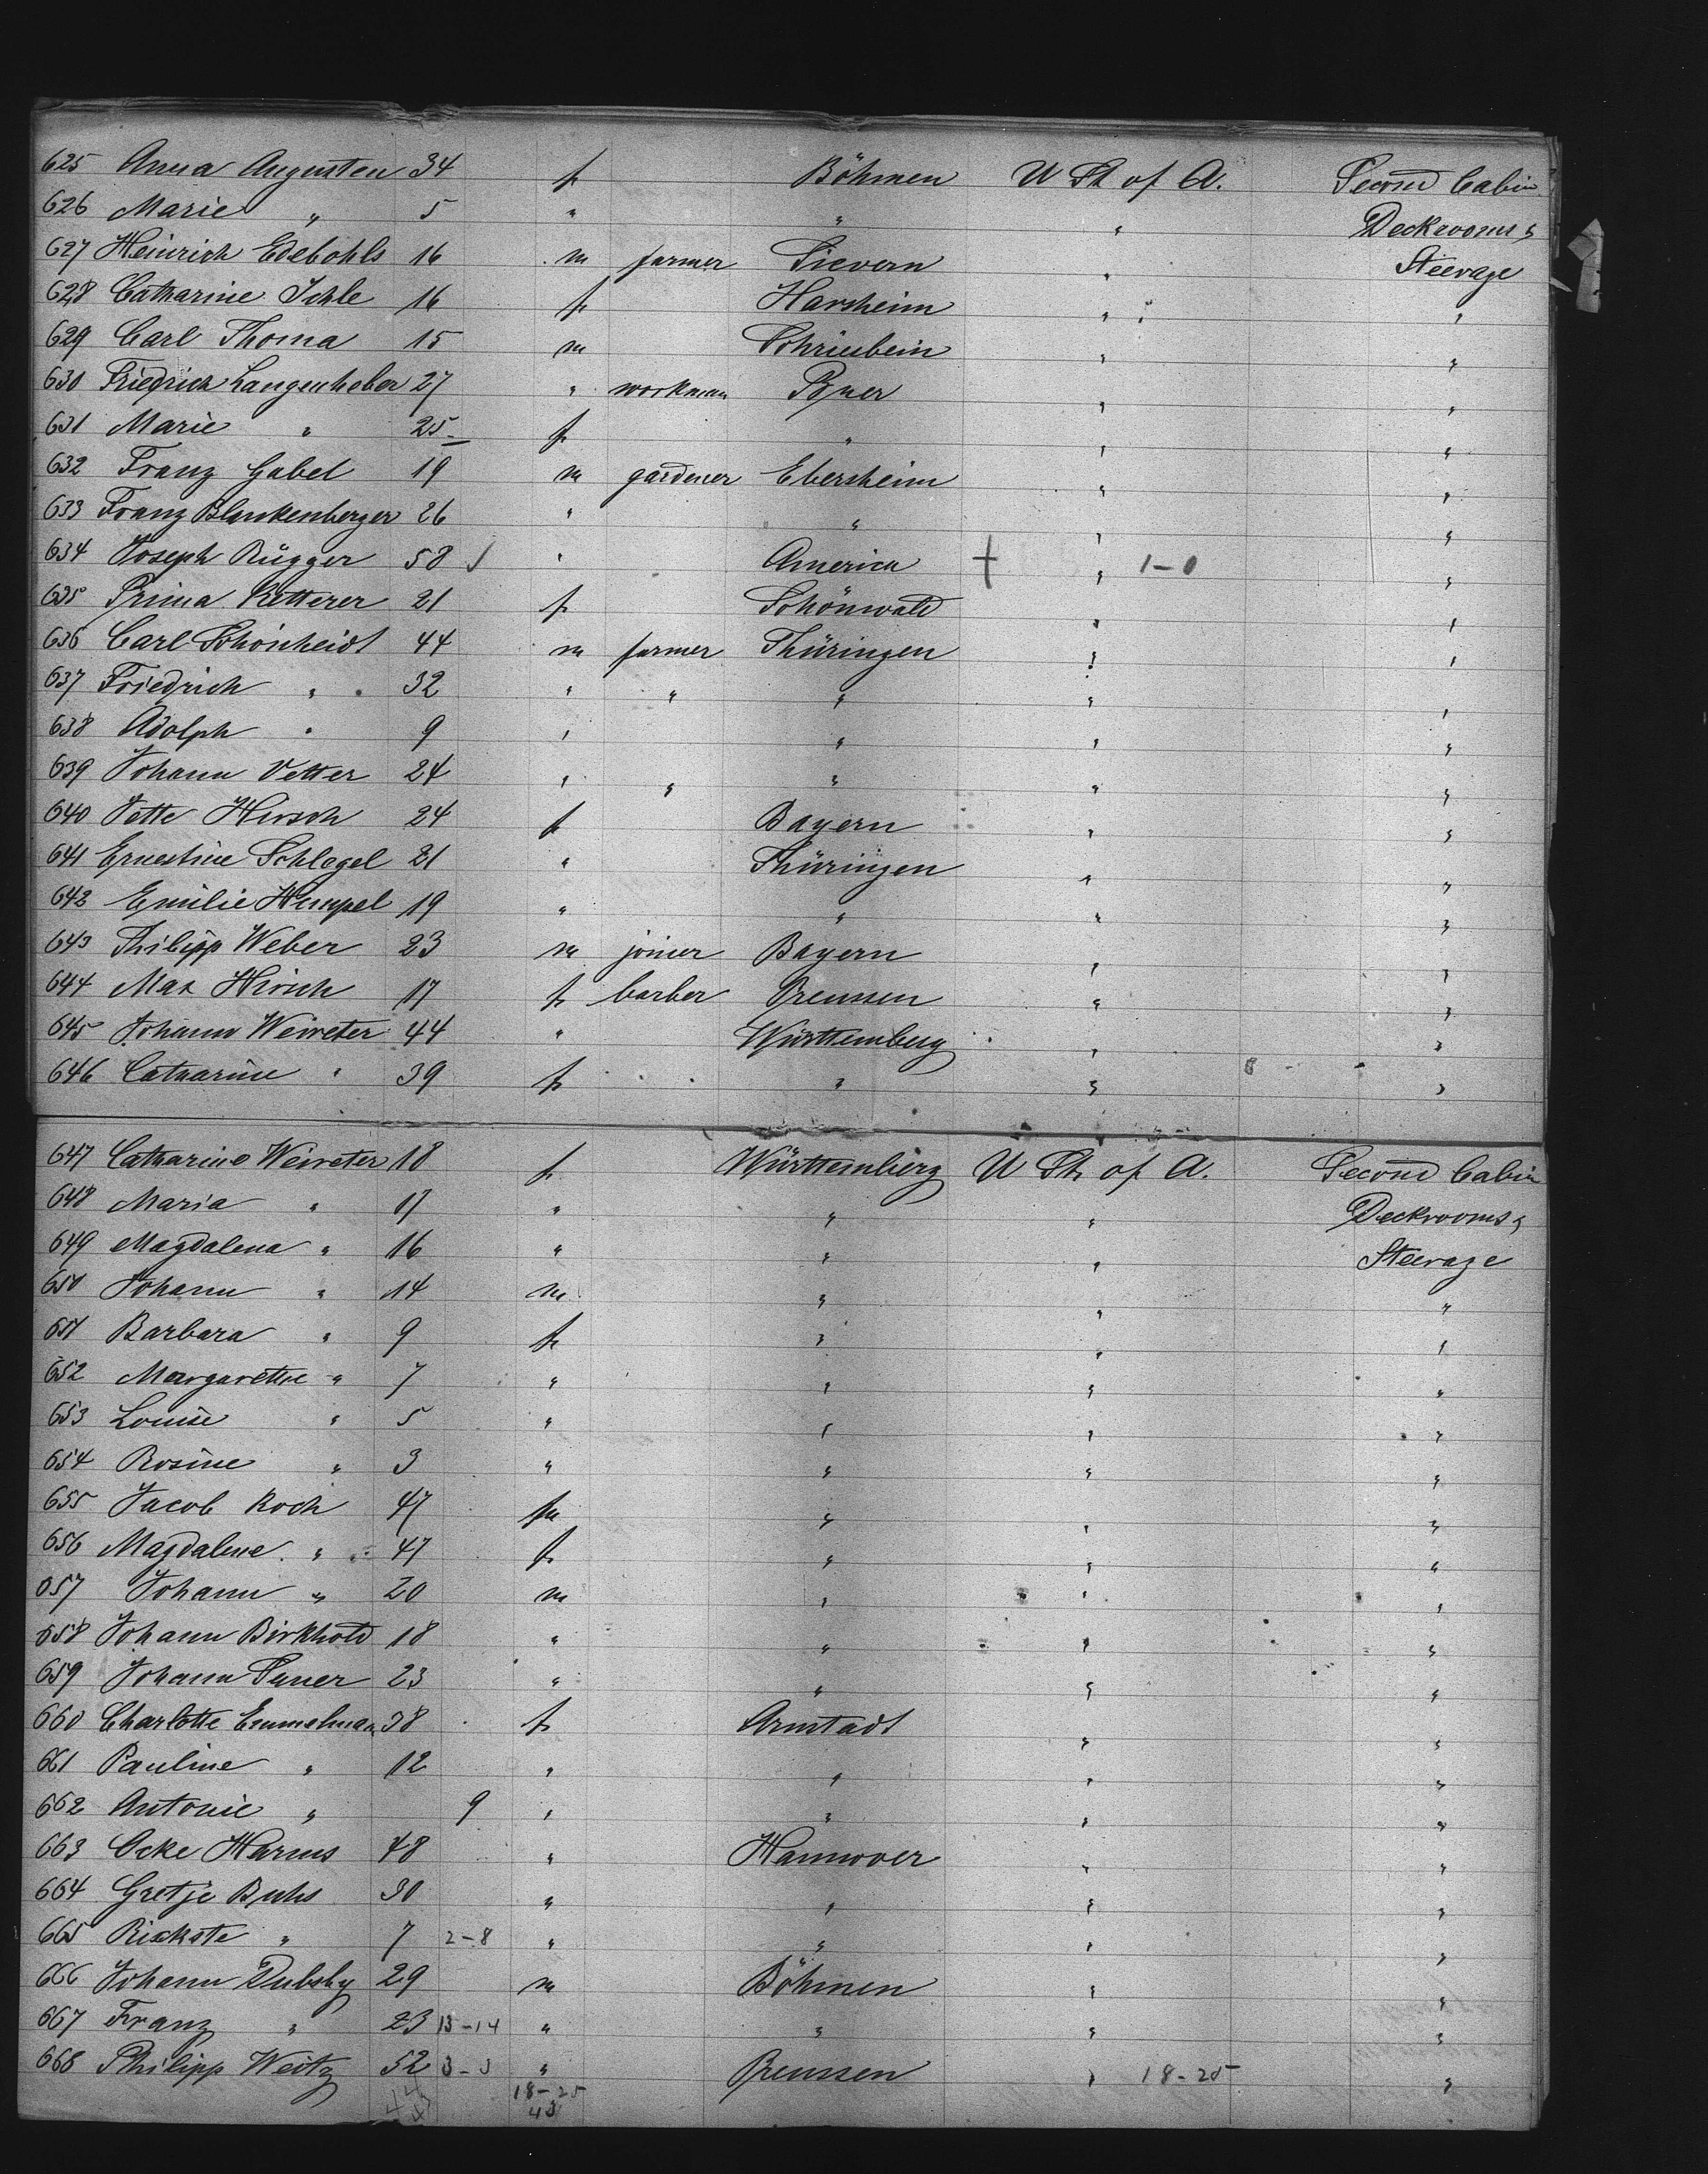 625 Anna Augusten 34 f Böhmen U St of A. Second Cabin
626 Marie " 5 " " " Deckrooms &
627 Heinrich Edebohls 16 m farmer Sievern " Steerage
628 Catharine Ichle 16 f Harsheim " "
629 Carl Thoma 15 m " "
630 Friedrich Langenheber 27 " workman " "
631 Marie " 25 f " " "
632 Franz Gabel 19 m gardener Ebersheim " "
633 Franz Blankenberger 26 " " " "
634 Joseph Rügger 58 " America " 1-0 "
635 Prima Ketterer 21 f Schönwald " "
636 Carl Schönheidt 44 m farmer Thüringen " "
637 Friedrich " 32 " " " " "
638 Adolph " 9 " " " "
639 Johann Vetter 24 " " " " "
640 Jette Hirsch 24 f Bayern " "
641 Ernestine Schlegel 21 " Thüringen " "
642 Emilie Hempel 19 " " " "
643 Philipp Weber 23 m joiner Bayern " "
644 Max Hirsch 17 f barber Preussen " "
645 Johann Weireter 44 " Württemberg " "
646 Catharine " 39 f " " "
647 Catharine Weireter 18 f Württemberg U St of A. Second Cabin
648 Maria " 17 " " " Deckrooms &
649 Magdalena " 16 " " " Steerage
650 Johann " 14 m " " "
651 Barbara " 9 f " " "
652 Margarethe " 7 " " " "
653 Louise " 5 " " " "
654 Rosine " 3 " " " "
655 Jacob Koch 47 m " " "
656 Magdalene " 47 f " " "
657 Johann " 20 m " " "
658 Johann Birkhold 18 " " " "
659 Johann 23 " " " "
660 Charlotte Emmelmann 38 f Arnstadt " "
661 Pauline " 12 " " " "
662 Antonie " 9 " " " "
663 Ocke Harms 48 " Hannover " "
664 Gretje Buhs 30 " " " "
665 Rickste " 7 2-8 " " " "
666 Johann Dubsky 29 m Böhmen " "
667 Franz " 23 13-14 " " " "
668 Philipp Weitz 52 3-3 " Preussen " 18-25 "
18-25
43